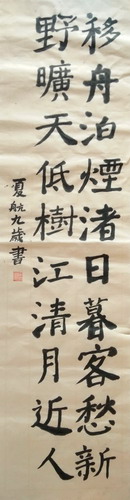 移舟泊煙渚日暮客愁新
野曠天低樹江清月近人
夏航九歲書